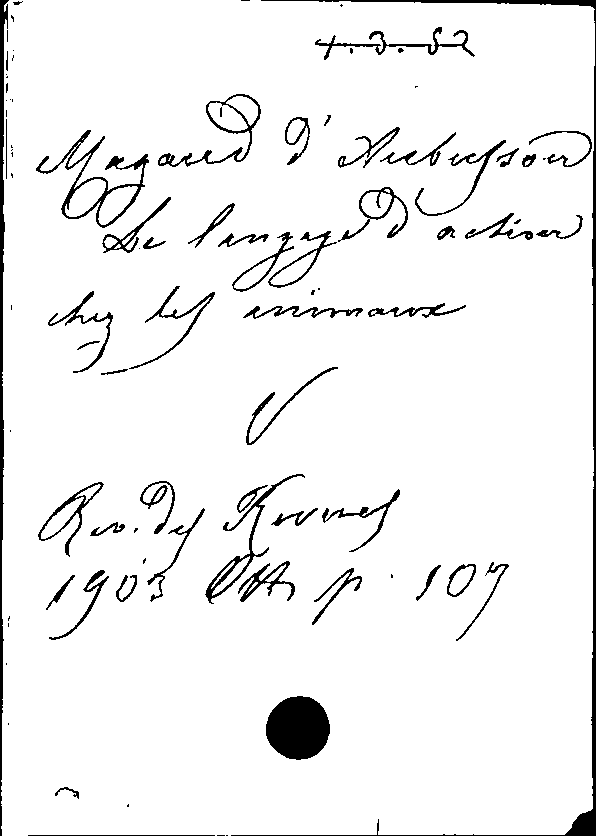 4.3.52
Magaud d'Aubusson
Le langage d'action
chez les animaux
Rev. des Revues
1903 Ott p. 107